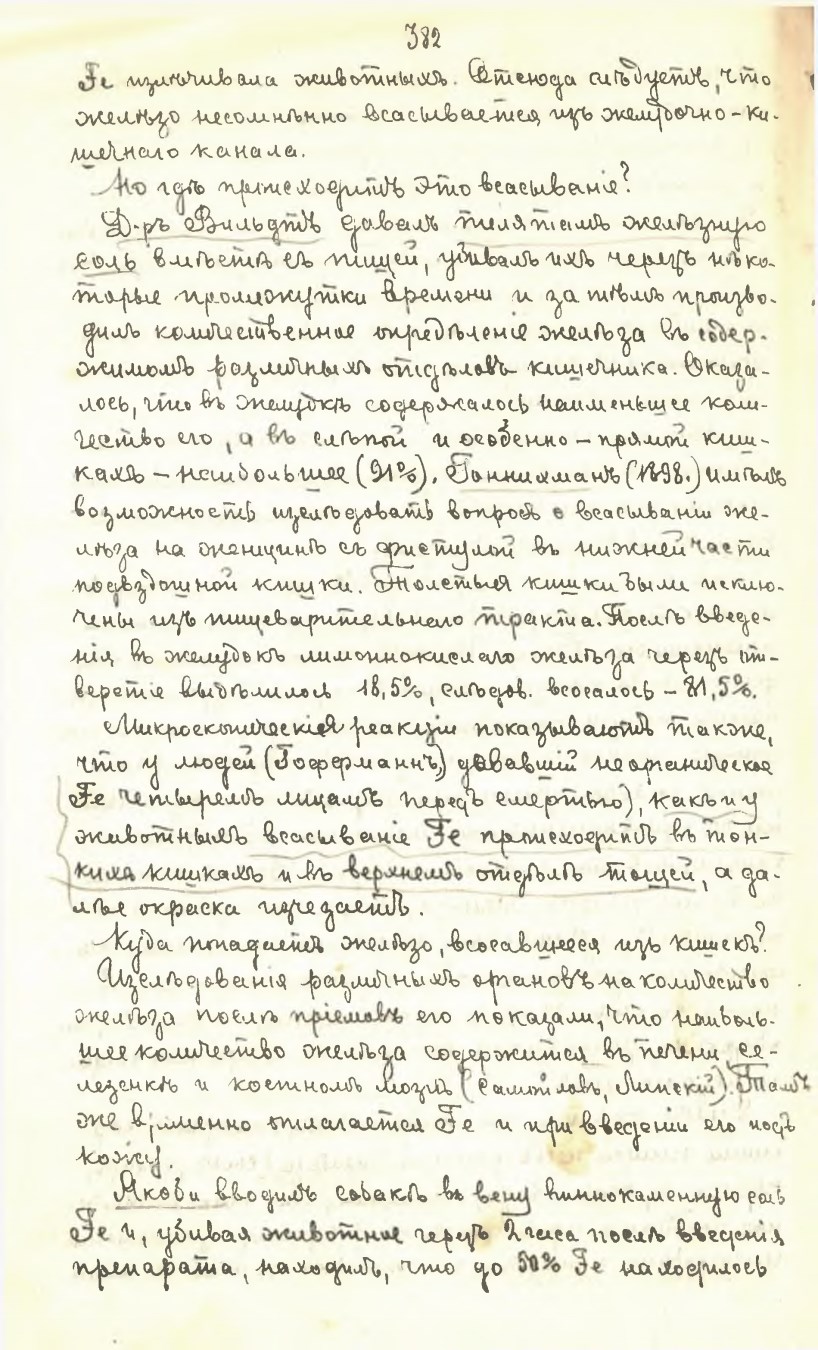 382
Fe излѣчивала животныхъ. Отсюда слѣдуетъ, что
желѣзо несомнѣнно всасывается изъ желудочно-ки-
шечнаго канала.
Но гдѣ происходитъ это всасываніе?
Д-ръ Вильдтъ давалъ телятамъ желѣзную
соль вмѣстѣ съ пищей, убивалъ ихъ черезъ нѣко-
торые промежутки времени и затѣмъ произво-
дилъ количественное опредѣленіе желѣза въ содер-
жимомъ различныхъ отдѣловъ кишечника. Оказа-
лось, что въ желудкѣ содержалось наименьшее коли-
чество его, а въ слѣпой и особенно – прямой киш-
кахъ – наибольшее (91%). Гоннихманъ (1898.) имѣлъ
возможность изслѣдовать вопросъ о всасываніи же-
лѣза на женщинѣ съ фистулой въ нижней части
подвздошной кишки. Толстыя кишки были исклю-
чены изъ пищеварительнаго тракта. Послѣ введе-
нія въ желудокъ лимоннокислаго желѣза черезъ от-
верстіе выдѣлилось 18,5%, слѣдов. всосалось – 81,5%.
Микроскопическія реакціи показываютъ также,
что у людей (Гофферманнъ, дававшій неорганическое
Fe четыремъ лицамъ передъ смертью), какъ и у
животныхъ всасываніе Fe происходитъ въ тон-
кихъ кишкахъ и въ верхнемъ отдѣлѣ тощей, а да-
лѣе окраска исчезаетъ.
Куда попадаетъ желѣзо, всосавшееся изъ кишекъ?
Изслѣдованія различныхъ органовъ на количество
желѣза послѣ пріемовъ его показали, что наиболь-
шее количество желѣза содержится въ печени, се-
лезенкѣ и костномъ мозгѣ (Самойловъ, Липскій). Тамъ
же временно отлагается Fe и при введеніи его подъ
кожу.
Якоби вводилъ собакѣ въ вену виннокаменную соль
Fe и, убивая животное черезъ 2 часа послѣ введенія
препарата, находилъ, что до 50% Fe находилось